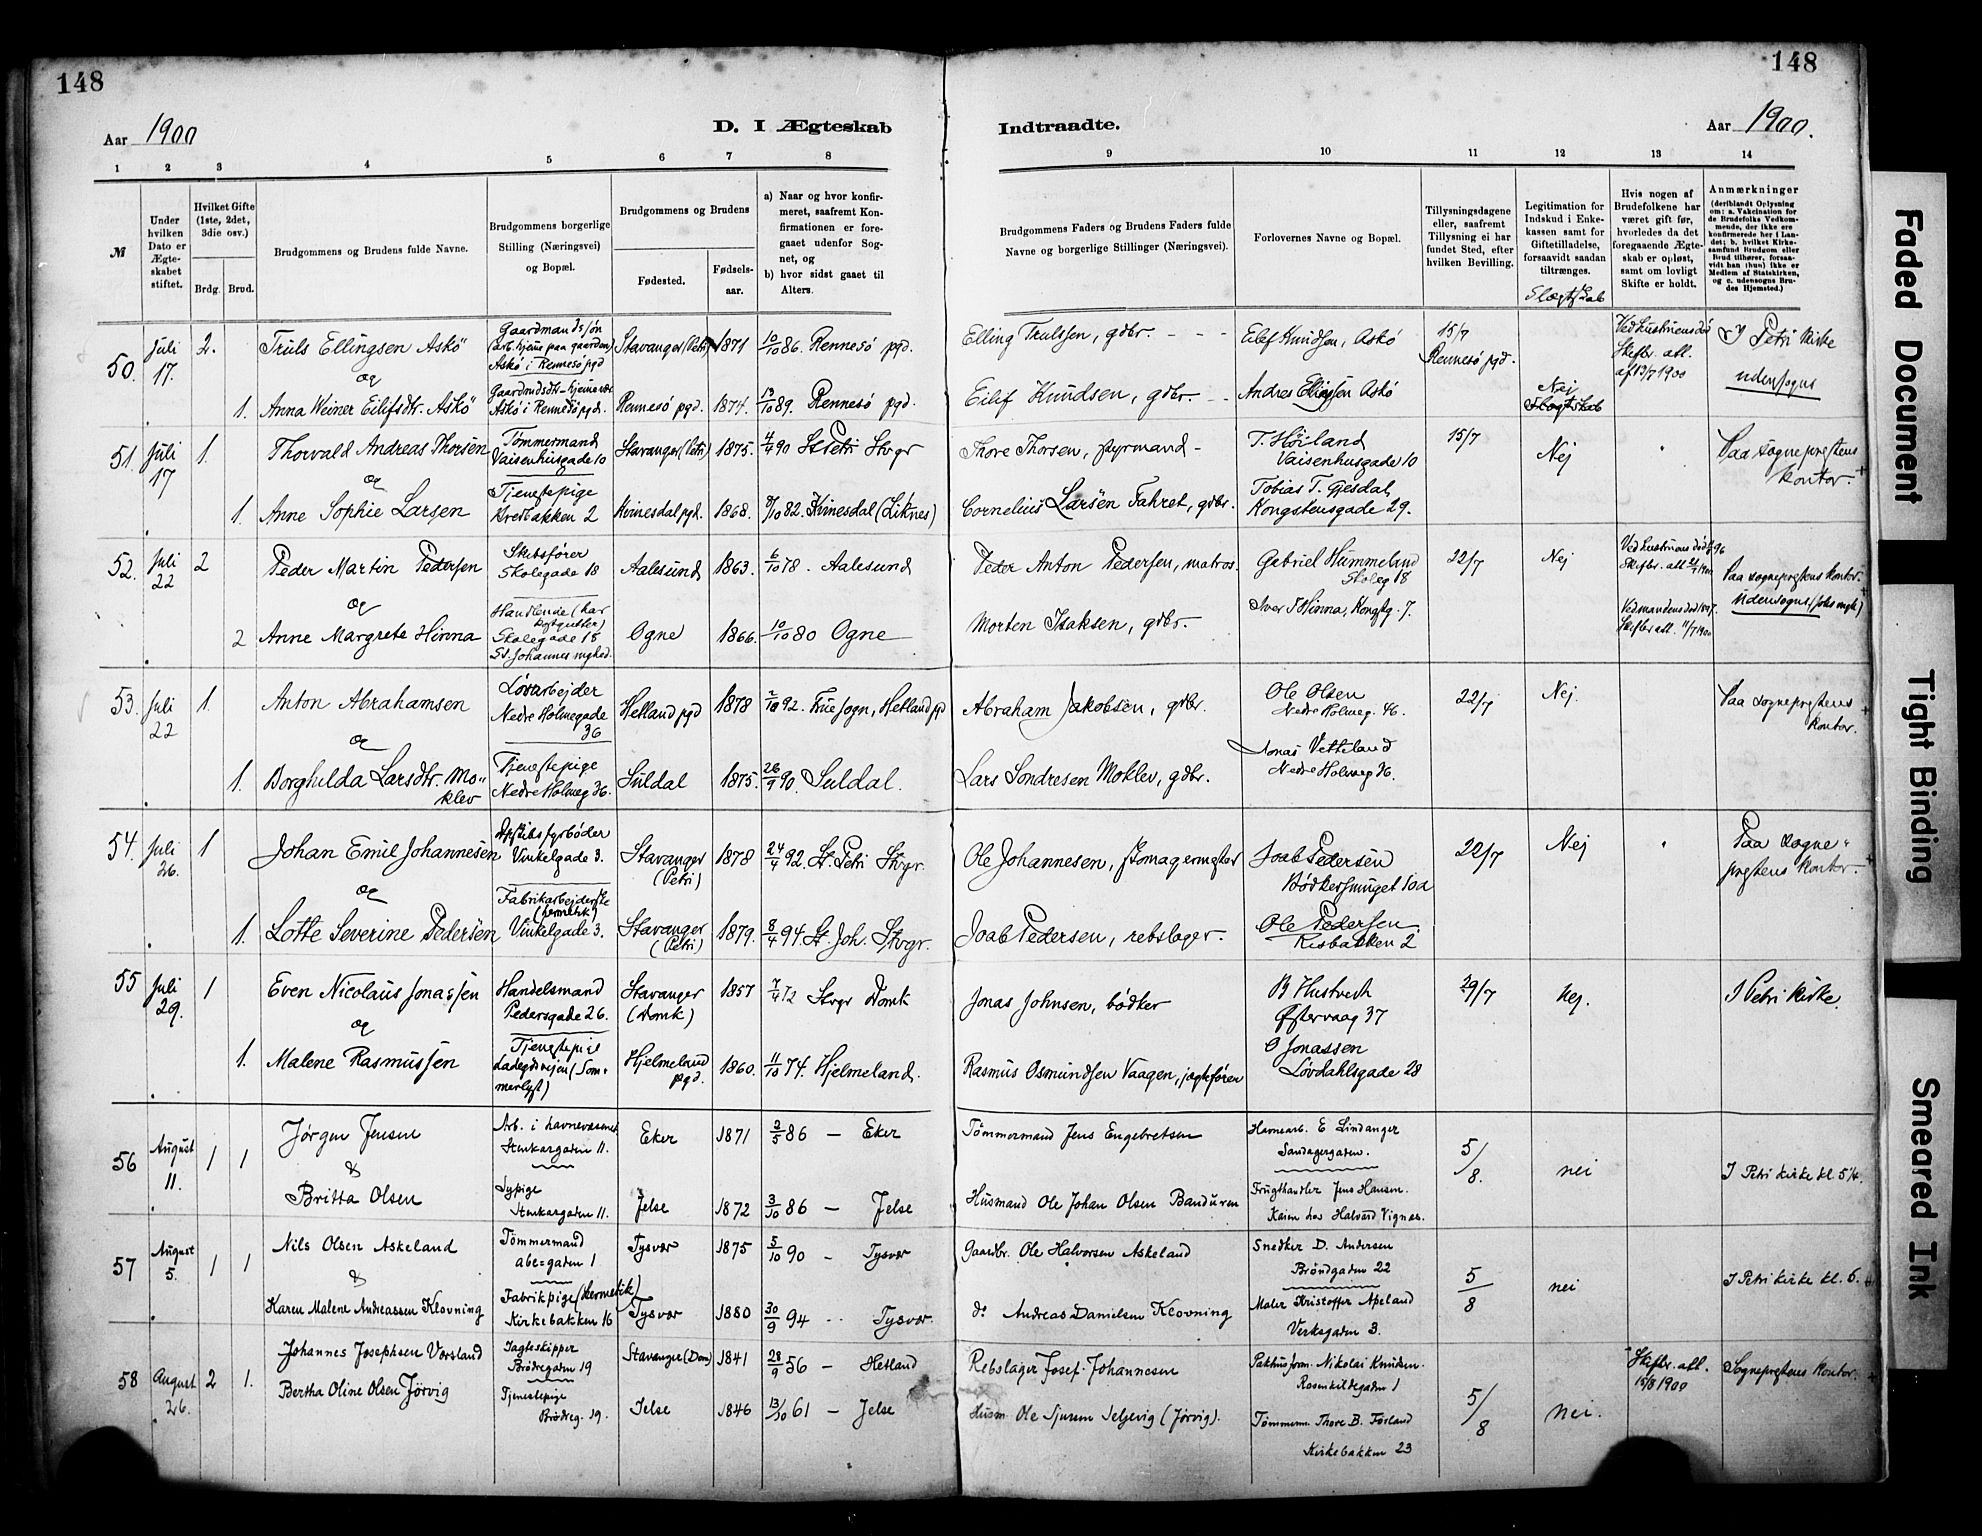 148
148
Aar 1900
D. I Ægteskab
Indtraadte.
Aar 1900.
1 2 3 4 5 6 7 8 9 10 11 12 13 14
№
Under hvilken Dato er Ægteskabet stiftet.
Hvilket Gifte (1ste, 2det, 3die osv.)
Brdg. Brud.
Brudgommens og Brudens fulde Navne.
Brudgommens borgerlige Stilling (Næringsvei) og Bopæl.
Brudgommens og Brudens
Fødested.
Fødselsaar.
a) Naar og hvor konfirmeret, saafremt Konfirmationen er foregaaet udenfor Sognet, og
b) hvor sidst gaaet til Alters.
Brudgommens Faders og Brudens Faders fulde Navne og borgerlige Stillinger (Næringsvei).
Forlovernes Navne og Bopæl.
Tillysningsdagene eller, saafremt Tillysning ei har fundet Sted, efter hvilken Bevilling.
Legitimation for Indskud i Enkekassen samt for Giftetilladelse, forsaavidt saadan tiltrænges.
Slægtskab
Hvis nogen af Brudefolkene har været gift før, hvorledes da det foregaaende Ægteskab er opløst, samt om lovligt Skifte er holdt.
Anmærkninger (deriblandt Oplysning om: a. Vakcination for de Brudefolks Vedkommende, der ikke ere konfirmerede her i Landet; b. hvilket Kirkesamfund Brudgom eller Brud tilhører, forsaavidt han (hun) ikke er Medlem af Statskirken, og c. udensogns Brudes Hjemsted.)
50. Juli 17. 2. Truls Ellingsen Askö Gaardmandssøn (arb. hjeme paa gaarden) Askö i Rennesö pgd Stavanger (Petri) 1871 10/10 86. Rennesö pgd. Elling Trulssen, gdbr. Eilef Knudsen, Askö 15/7 Rennesö pgd. Ved hustruens død Skiftbr. att. af 13/7 1900 I Petri Kirke
og
1. Anna Weiner Eilifsdtr. Askö Askö i Rennesö pgd. Rennesö pgd. 1874. 13/10 89. Rennesö pgd. Eilif Knudsen, gdbr. Andres Ellingsen Askö Nej Slægtskab udensogns
51. Juli 17 1. Thorvald Andreas Thorsen Tømmermand Vaisenhusgade 10 Stavanger (Petri) 1875. 4/4 90 St Petri Stvgr Thore Thorsen, styrmand T. Höiland Vaisenhusgade 10 15/7 Nej Paa sogneprestens Kontor.
og
1. Anne Sophie Larsen Tjenestepige Bredbakken 2 Kvinesdal pgd. 1868. 8/10 82. Kvinesdal (Liknes) Cornelius Larsen Fahret, gdbr. Tobias T. Gjesdal Kongstensgade 29.
52. Juli 22 2 Peder Martin Pedersen Skibsfører Skolegade 18 Aalesund 1863. 6/10 78. Aalesund Peder Anton Pedersen, matros. Gabriel Hummeland Skoleg 18 22/7 Nej Paa sogneprestens kontor.
og
2 Anne Margrete Hinna Handlende Skolegade 18 St. Johannes mghed. Ogne 1866. 10/10 80 Ogne Morten Isaksen, gdbr. Iver T Hinna, Kongstg. 7. Ved mandens død 1897. Skiftbr att. 11/7 1900 Udensogns (Johs mgh)
53. Juli 22 1. Anton Abrahamsen Løsarbejder Nedre Holmegade 36 Hetland pgd 1878 2/10 92. Frue sogn, Hetland pgd Abraham Jakobsen, gdbr. Ole Olsen Nedre Holmeg. 46. 22/7 Nej. Paa sogneprestens Kontor.
og
1. Borghilda Larsdtr. Moklev Tjenestepige Nedre Holmeg 36. Suldal 1875. 26/9 90. Suldal. Lars Sondresen Moklev, gdbr. Jonas Vetteland Nedre Holmeg 36.
54. Juli 26. 1 Johan Emil Johannesen Dpskibsfyrbøder Vinkelgade 3. Stavanger (Petri) 1878 24/4 92. St. Petri Stvgr. Ole Johannesen, skomagermester Joab Pedersen Bødkersmuget 10a 22/7 Nej Paa sogneprestens Kontor.
og
1. Lotte Severine Pedersen Fabrikarbejderske (hermetik) Vinkelgade 3. Stavanger (Petri) 1879. 8/4 94. St. Joh. Stvgr. Joab Pedersen, rebslager. Ole Pedersen. Risbakken 2
55 Juli 29. 1 Even Nicolaus Jonassen Handelsmand Pedersgade 26. Stavanger (Domk) 1857 7/4 72 Stvgr Domk Jonas Johnsen, bødker B Hustvedt Østervaag 37 29/7 Nej. I Petri Kirke.
og
1. Malene Rasmussen Tjenestepige Ladegdsvejen (Sommerlyst) Hjelmeland pgd. 1860. 11/10 74. Hjelmeland. Rasmus Osmundsen Vaagen, jagtfører O Jonassen Løvdahlsgade 28
56 August 11. 1 1 Jørgen Jensen Arb. i havnevæsenet Stenkargaden 11. Eker 1871 2/5 86 — Eker Tømmermand Jens Engebretsen Havnearb. E Lindanger Sandagergaden. 5/8. nei I Petri kirke kl 5 1/4.
&
Britta Olsen Sypige Stenkargaden 11. Jelse 1872 3/10 86 — Jelse Husmand Ole Johan Olsen Banduren Frugthandler Jens Hansen. Kaien hos Halvard Vignæs.
57 August 5. 1 1 Nils Olsen Askeland Tømmermand abc-gaden 1 Tysvær 1875 5/10 90 — Tysvær Gaardbr. Ole Halvorsen Askeland Snedker D. Andersen Brøndgaden 22 5/8 nei I Petri kirke kl. 6.
&
Karen Malene Andreassen Klovning Fabrikpige (Hermetik) Kirkebakken 16 Tysvær 1880 30/9 94 Tysvær. do Andreas Danielsen Klovning Maler Kristoffer Apeland Verksgaden 3.
58 August 26. 2 1. Johannes Josephsen Vorsland Jagteskipper Brødregaden 19 Stavanger (Dom) 1841 28/9 56 — Hetland Rebslager Josef Johannesen Pakhusform. Nikolai Knudsen. Rosenkildegaden 1 5/8 nei. Skiftbr. att. 15/8 1900 Sogneprestens Kontor.
Bertha Oline Olsen Jörvig Tjenestepige Brødreg. 19. Jelse 1846 13/10 61 — Jelse Husm. Ole Sjursen Seljevig (Jørvig). Tømmerm. Thore B. Fosland Kirkebakken 23
Faded Document
Tight Binding
Smeared Ink